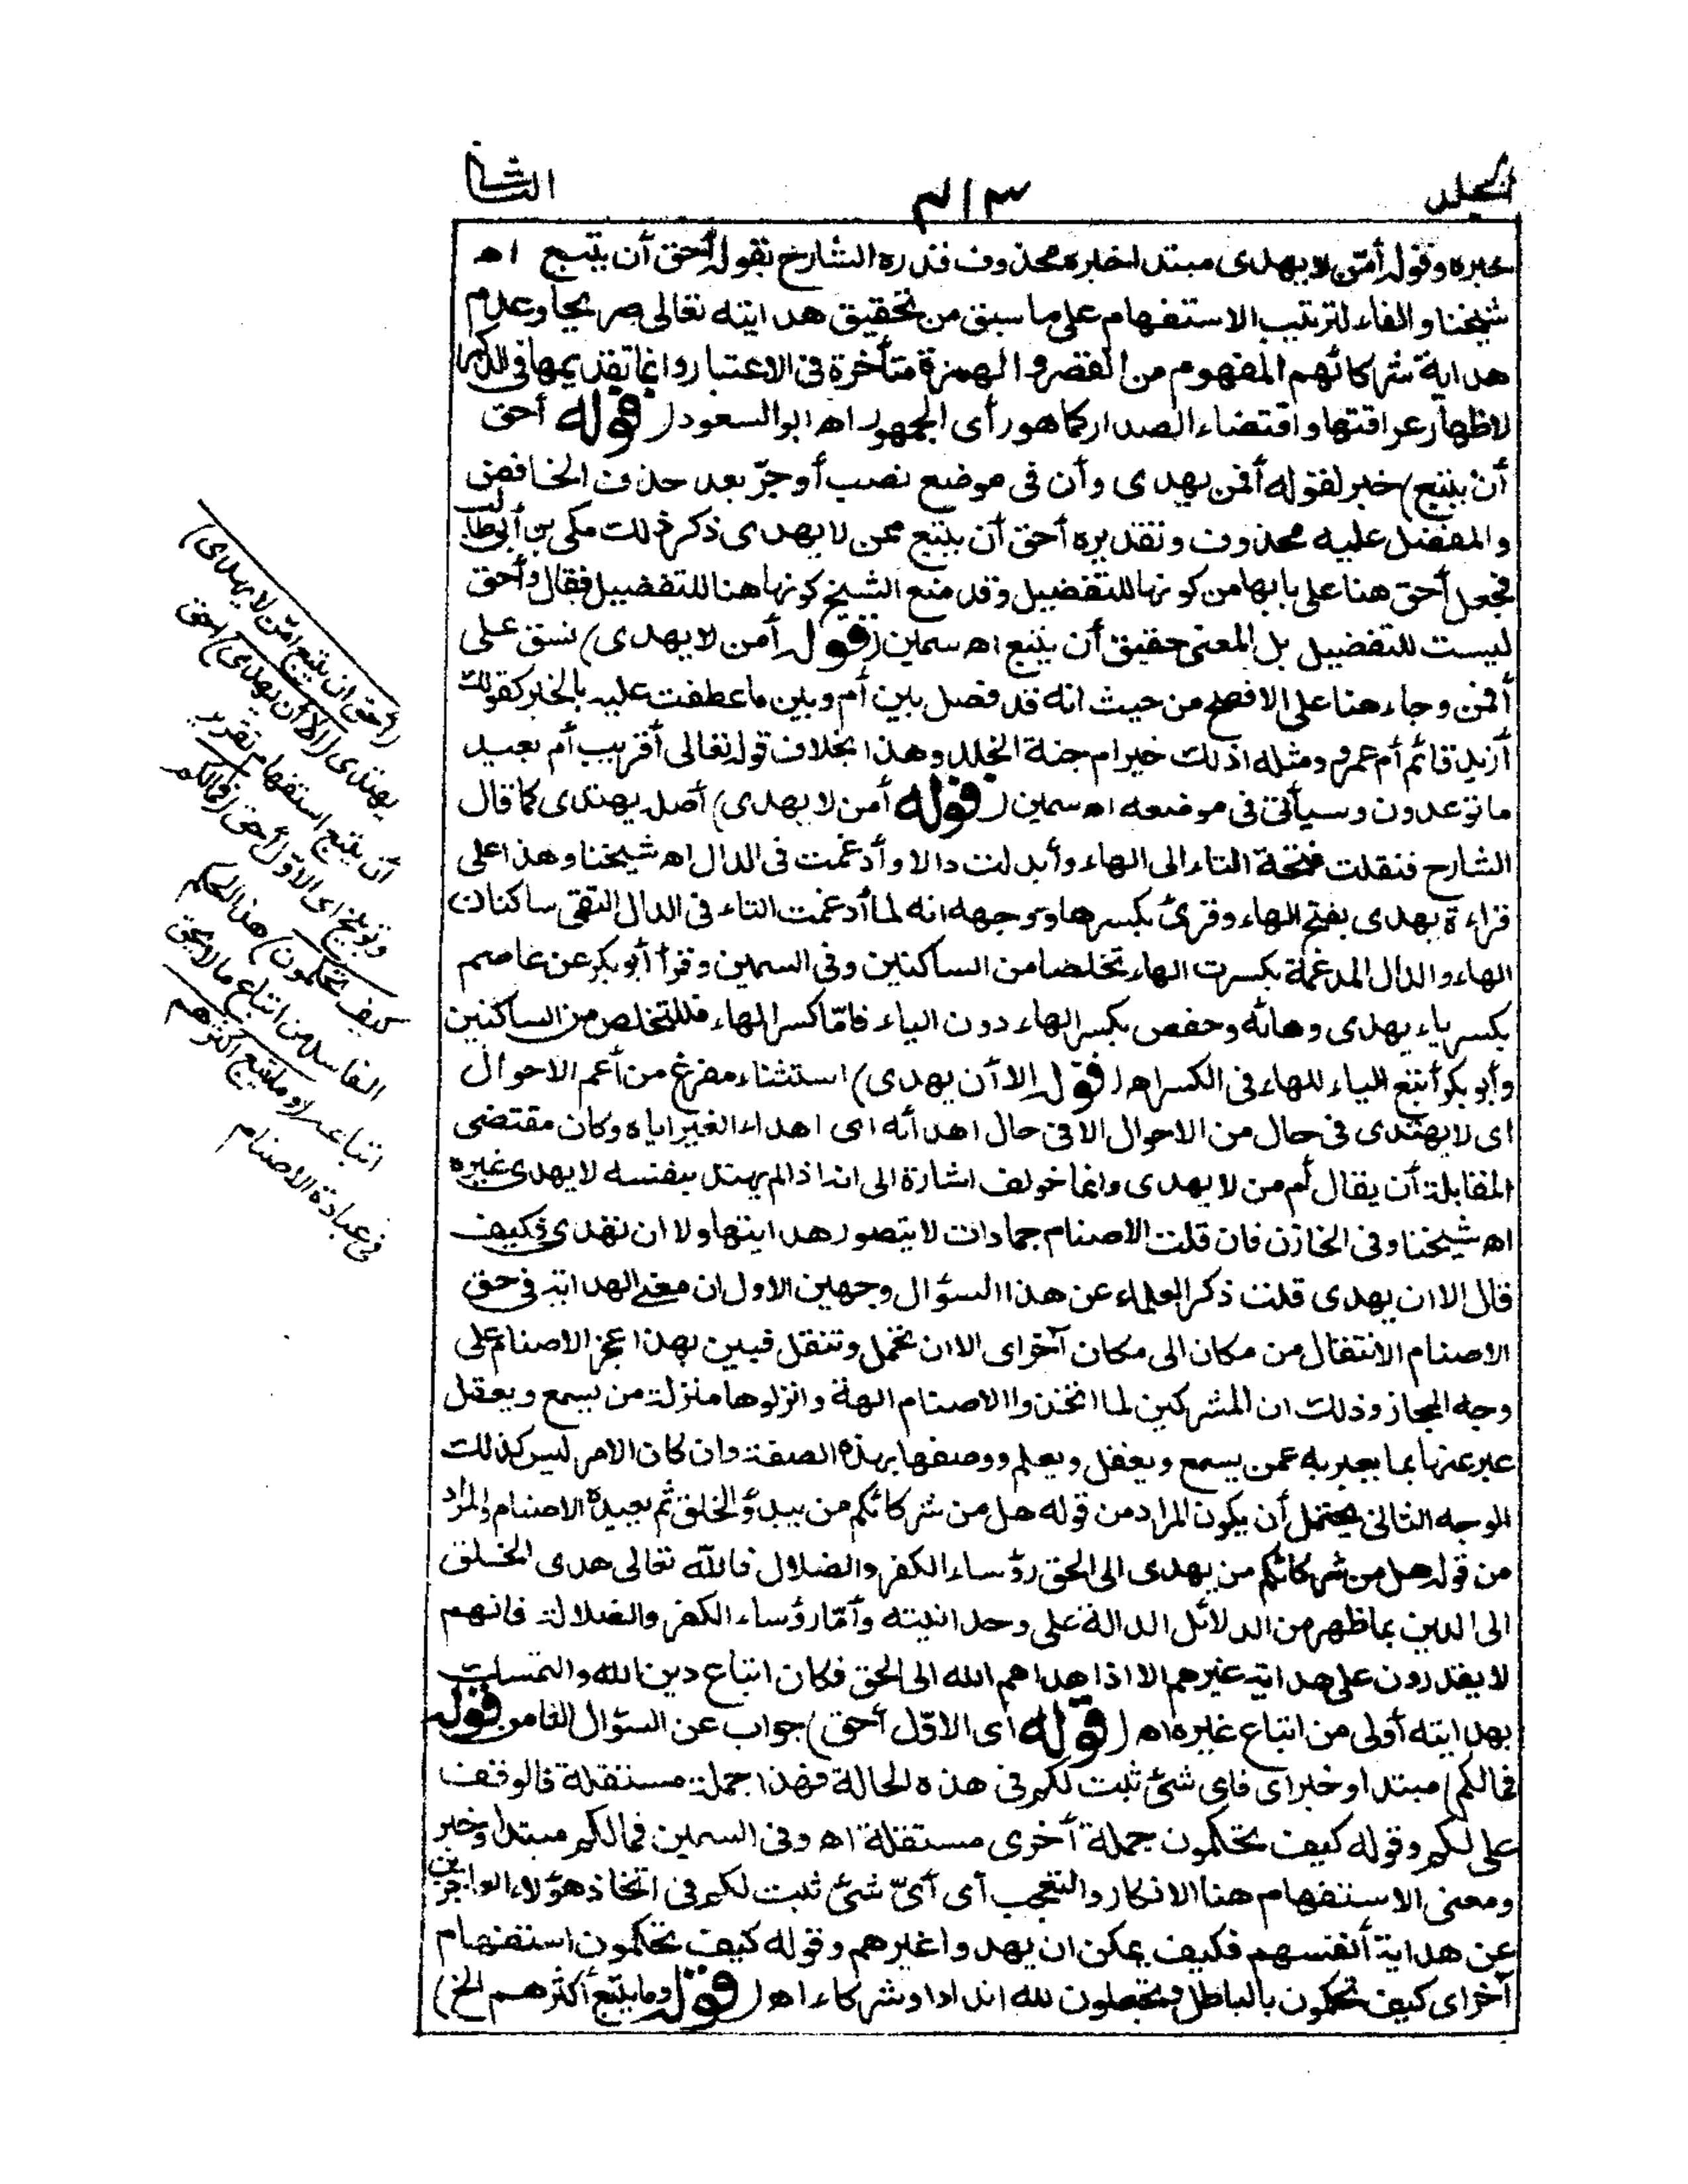 الجلد
٣١٣
الثانى
خبره وقوله أمّن لا يهدى مبتدا خبره محذوف قدره الشارح بقوله أحق أن يتبع اه
شيخنا والفاء لترتيب الاستفهام على ما سبق من تحقيق هدايته تعالى صريحا وعدم
هداية شركائهم المفهوم من القصر والهمزة متأخرة فى الاعتبار وانما تقديمها فى الذكر
لاظهار عراقتها واقتضاء الصدارة كما هو رأى الجمهور اه ابو السعود (قوله أحق
أن يتبع) خبر لقوله أفمن يهدى وأن فى موضع نصب أو جرّ بعد حذف الخافض
والمفضل عليه محذوف وتقديره أحق أن يتبع ممن لا يهدى ذكر ذلك مكى بن أبى طالب
فجعل أحق هنا على بابها من كونها للتفضيل وقد منع الشيخ كونها هنا للتفضيل فقال وأحق
ليست للتفضيل بل المعنى حقيق أن يتبع اه سمين (قوله أمن لا يهدى) نسق على
أفمن وجاء هنا على الافصح من حيث انه قد فصل بين أم وبين ما عطفت عليه بالخبر كقولك
أزيد قائم أم عمرو ومثله اذلك خير ام جنة الخلد وهذا بخلاف قوله تعالى أقريب أم بعيد
ما توعدون وسيأتى فى موضعه اه سمين (قوله أمن لا يهدى) أصله يهتدى كما قال
الشارح فنقلت فتحة التاء الى الهاء وأبدلت دالا وأدغمت فى الدال اه شيخنا وهذا على
قراءة يهدى بفتح الهاء وقرئ بكسرها وتوجهه انه لما أدغمت التاء فى الدال التقى ساكنان
الهاء والدال المدغمة بكسرت الهاء تخلصا من الساكنين وفى السمين وقرأ أبو بكر عن عاصم
بكسر ياء يهدى وهائه وحفص بكسر الهاء دون الياء فامّا كسر الهاء فللتخلص من الساكنين
وأبو بكر أتبع الياء للهاء فى الكسر اه (قوله الا أن يهدى) استثناء مفرغ من أعم الاحوال
اى لا يهتدى فى حال من الاحوال الا فى حال اهدائه اى اهداء الغير اياه وكان مقتضى
المقابلة أن يقال أم من لا يهدى وانما خولف اشارة الى انه اذا لم يهتد بنفسه لا يهدى غيره
اه شيخنا وفى الخازن فان قلت الاصنام جمادات لا يتصور هدايتها ولا ان تهدى فكيف
قال الا ان يهدى قلت ذكر العلماء عن هذا السؤال وجهين الاول ان معنى الهداية فى حق
الاصنام الانتقال من مكان الى مكان آخر اى الا ان تحمل وتنقل فبين بهذا عجز الاصنام على
وجه المجاز وذلك ان المشركين لما اتخذوا الاصنام الهة وانزلوها منزلة من يسمع ويعقل
عبر عنها بما يعبر به عمن يسمع ويعقل ويعلم ووصفها بهذه الصفة وان كان الامر ليس كذلك
الوجه الثانى يحتمل أن يكون المراد من قوله هل من شركائكم من يبدؤ الخلق ثم يعيده الاصنام والمراد
من قوله هل من شركائكم من يهدى الى الحق رؤساء الكفر والضلال فالله تعالى هدى الخلق
الى الدين بما ظهر من الدلائل الدالة على وحدانيته وأمّا رؤساء الكفر والضلالة فانهم
لا يقدرون على هداية غيرهم الا اذا هداهم الله الى الحق فكان اتباع دين الله والتمسك
بهدايته أولى من اتباع غيره اه (قوله اى الاوّل أحق) جواب عن السؤال الثامن (قوله
فمالكم) مبتدا وخبر اى فاى شئ ثبت لكم فى هذه الحالة فهذا جملة مستقلة فالوقف
على لكم وقوله كيف تحكمون جملة أخرى مستقلة اه وفى السمين فمالكم مبتدا وخبر
ومعنى الاستفهام هنا الانكار والتعجب أى أىّ شئ ثبت لكم فى اتخاذ هؤلاء العاجزين
عن هداية أنفسهم فكيف يمكن ان يهدوا غيرهم وقوله كيف تحكمون استفهام
آخر اى كيف تحكمون بالباطل وتجعلون لله اندادا وشركاء اه (قوله وما يتبع أكثرهم الخ)
(أحق ان يتبع امّن لا يهدى)
يهتدى (الا أن يهدى) احق
أن يتبع استفهام تقرير
وتوبيخ اى الاوّل أحق (فمالكم
كيف تحكمون) هذا الحكم
الفاسد من اتباع ما لا يحق
اتباعه (وما يتبع اكثرهم
فى عبادة الاصنام